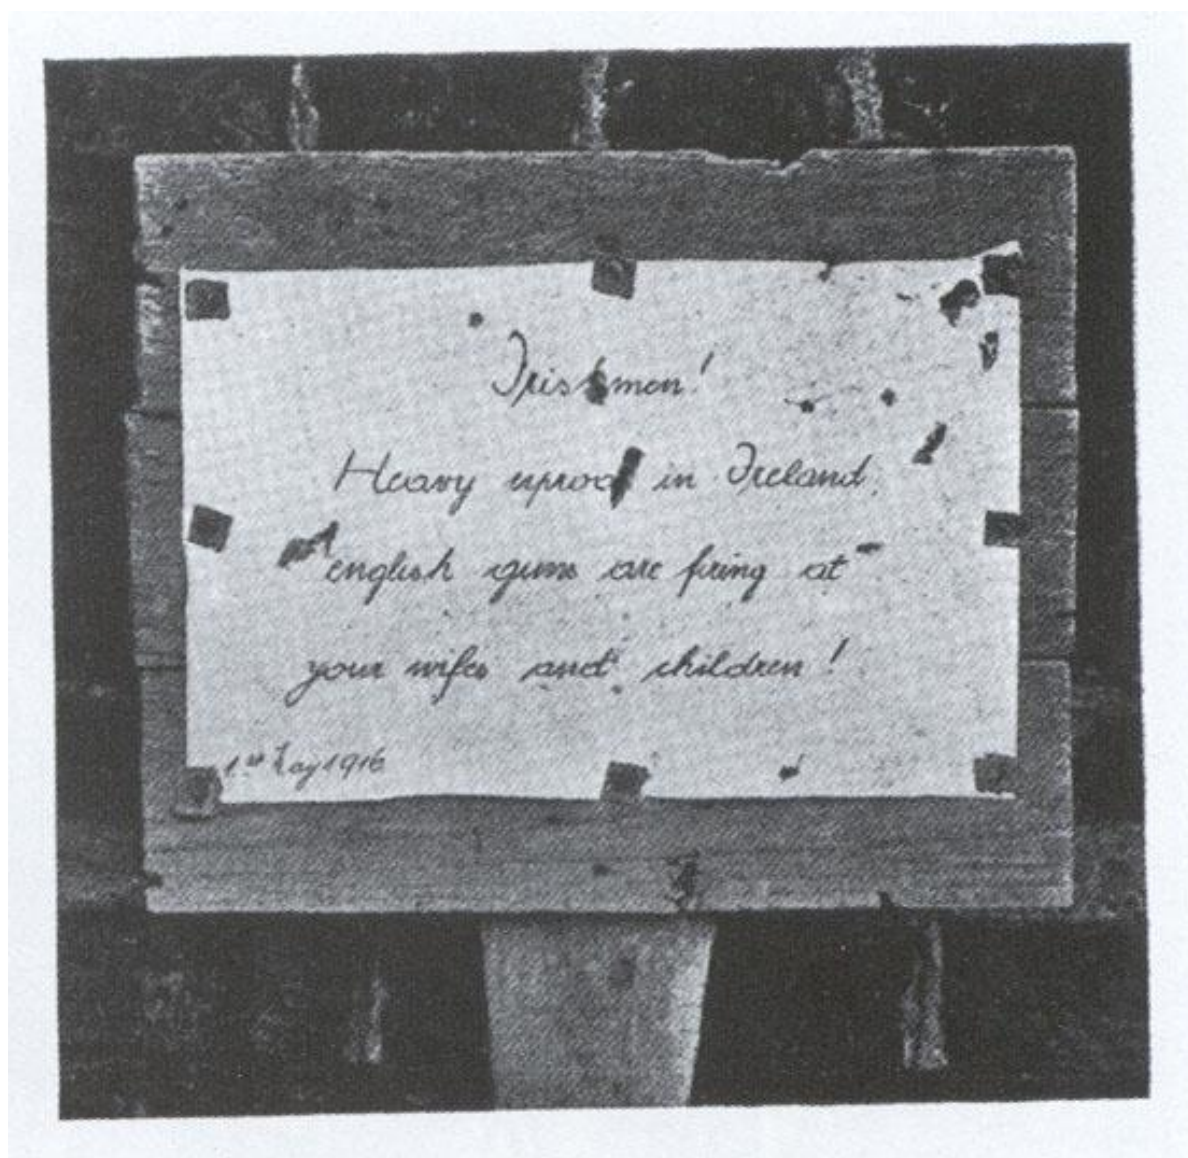 Irishmen!
Heavy uproar in Ireland.
english guns are firing at
your wifes and children!
1st May 1916